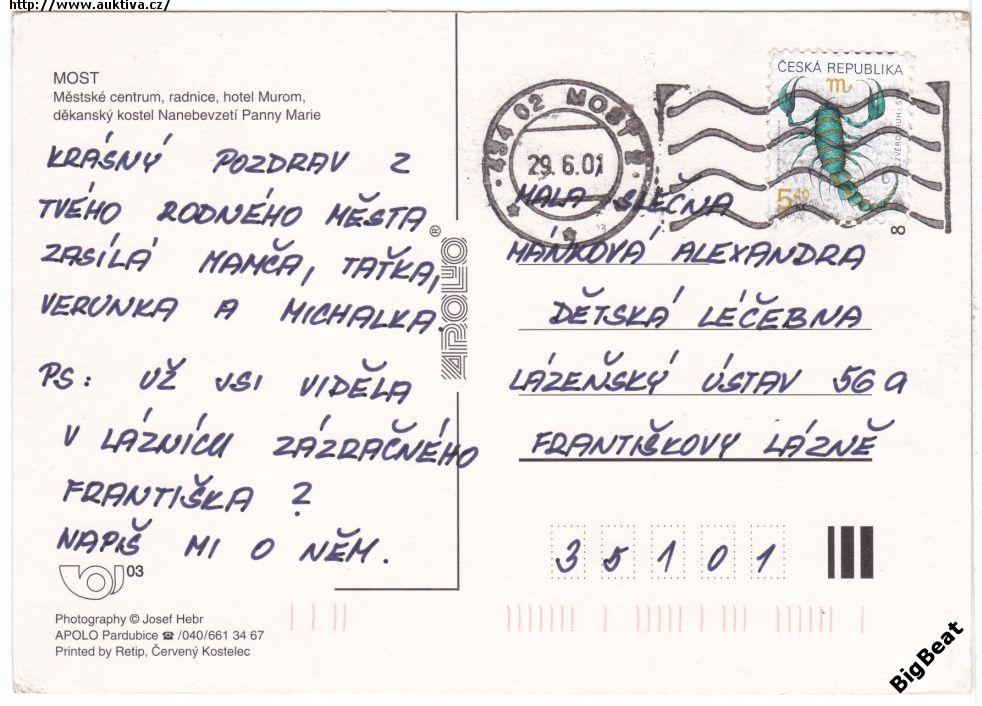 http://www.auktiva.cz/
MOST
Městské centrum, radnice, hotel Murom,
děkanský kostel Nanebevzetí Panny Marie
KRÁSNÝ POZDRAV Z
TVÉHO RODNÉHO MĚSTA
ZASÍLÁ MAMČA, TAŤKA,
VERUNKA A MICHALKA.
PS: UŽ JSI VIDĚLA
V LÁZNÍCH ZÁZRAČNÉHO
FRANTIŠKA ?
NAPIŠ MI O NĚM.
03
Photography © Josef Hebr
APOLO Pardubice ☎ /040/661 34 67
Printed by Retip, Červený Kostelec
APOLO®
MOST
29.6.01
ČESKÁ REPUBLIKA
5,40
8
MALA SLEČNA
MÁŇKOVÁ ALEXANDRA
DĚTSKÁ LÉČEBNA
LÁZEŇSKÝ ÚSTAV 56 a
FRANTIŠKOVY LÁZNĚ
3 5 1 0 1
BigBeat